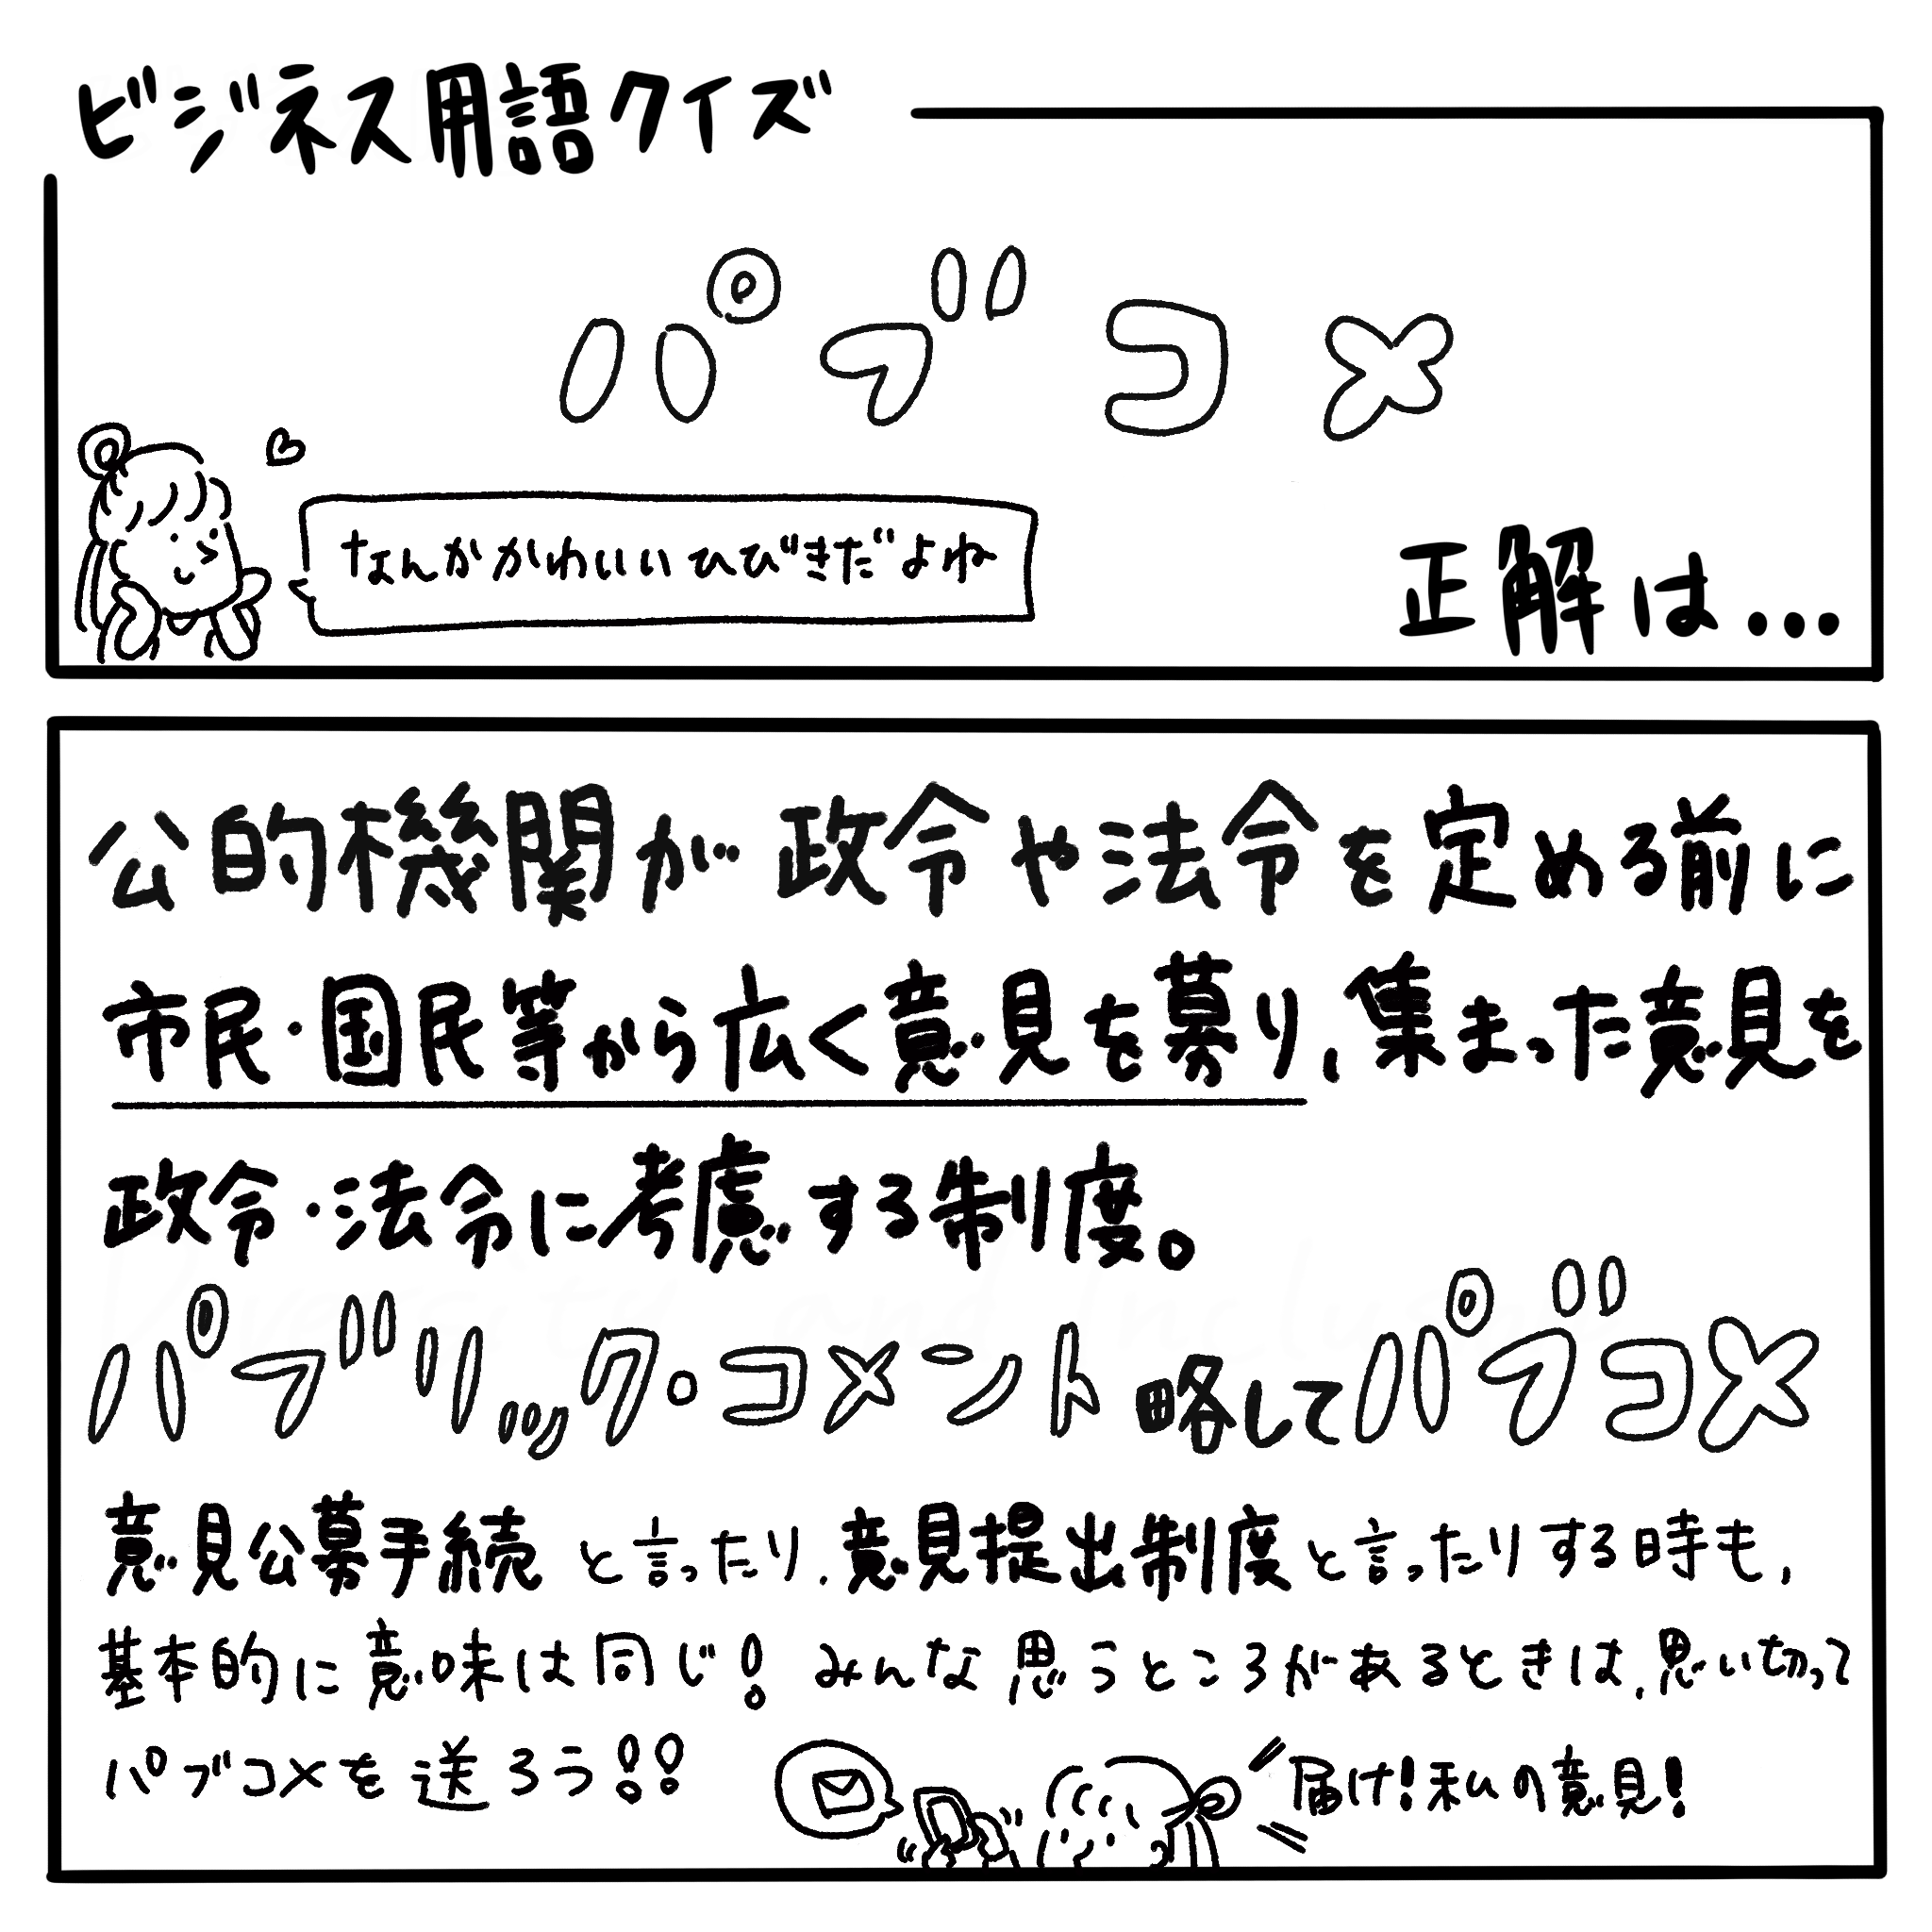 ビジネス用語クイズ
パブコメ
なんかかわいいひびきだよね
正解は...
公的機関が政令や法令を定める前に
市民・国民等から広く意見を募り、集まった意見を
政令・法令に考慮する制度。
パブリック・コメント略してパブコメ
意見公募手続と言ったり、意見提出制度と言ったりする時も、
基本的に意味は同じ！みんな思うところがあるときは、思い切って
パブコメを送ろう！！
届け！私の意見！